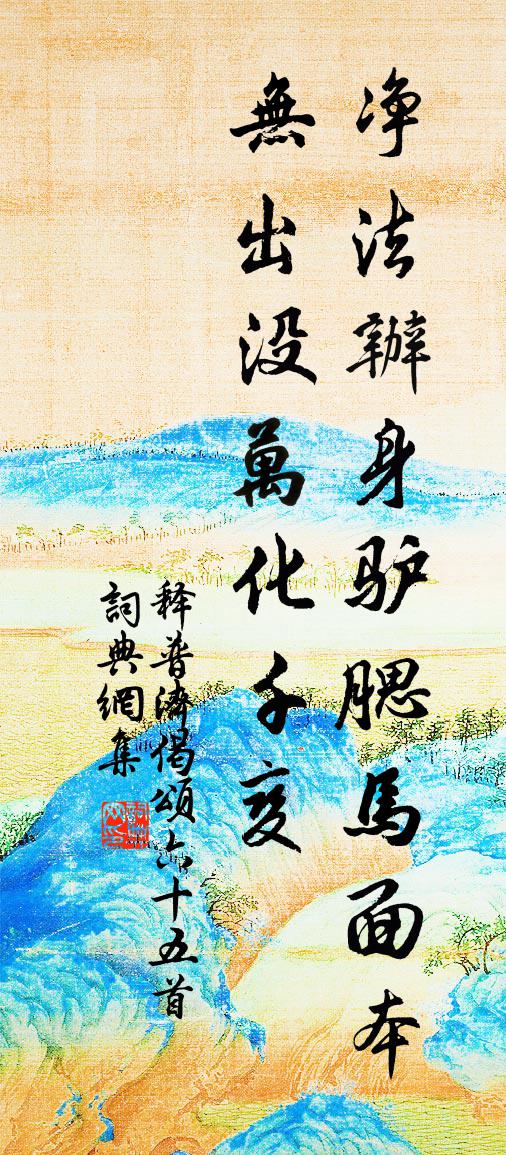 净法辦身驴腮馬面本
無出没萬化千变
释普濟偈頌六十五首
詞典網集